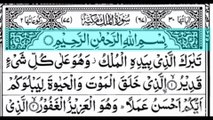 سُوْرَةُ الْمُلْكِ مَكِّيَّةٌ
بِسْمِ اللّٰهِ الرَّحْمٰنِ الرَّحِيْمِ
تَبٰرَكَ الَّذِيْ بِيَدِهِ الْمُلْكُ وَهُوَ عَلٰى كُلِّ شَيْءٍ
قَدِيْرُ ۨ الَّذِيْ خَلَقَ الْمَوْتَ وَالْحَيٰوةَ لِيَبْلُوَكُمْ
اَيُّكُمْ اَحْسَنُ عَمَلًا ؕ وَهُوَ الْعَزِيْزُ الْغَفُوْرُ ۙ الَّذِيْ